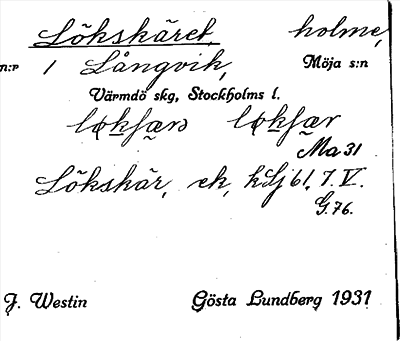 Lökskäret, holme,
n:r 1 Långvik, Möja s:n
Värmdö skg, Stockholms l.
Ma 31
Lökskär, ek, klj 61, 7. V.
G. 76.
J. Westin Gösta Lundberg 1931